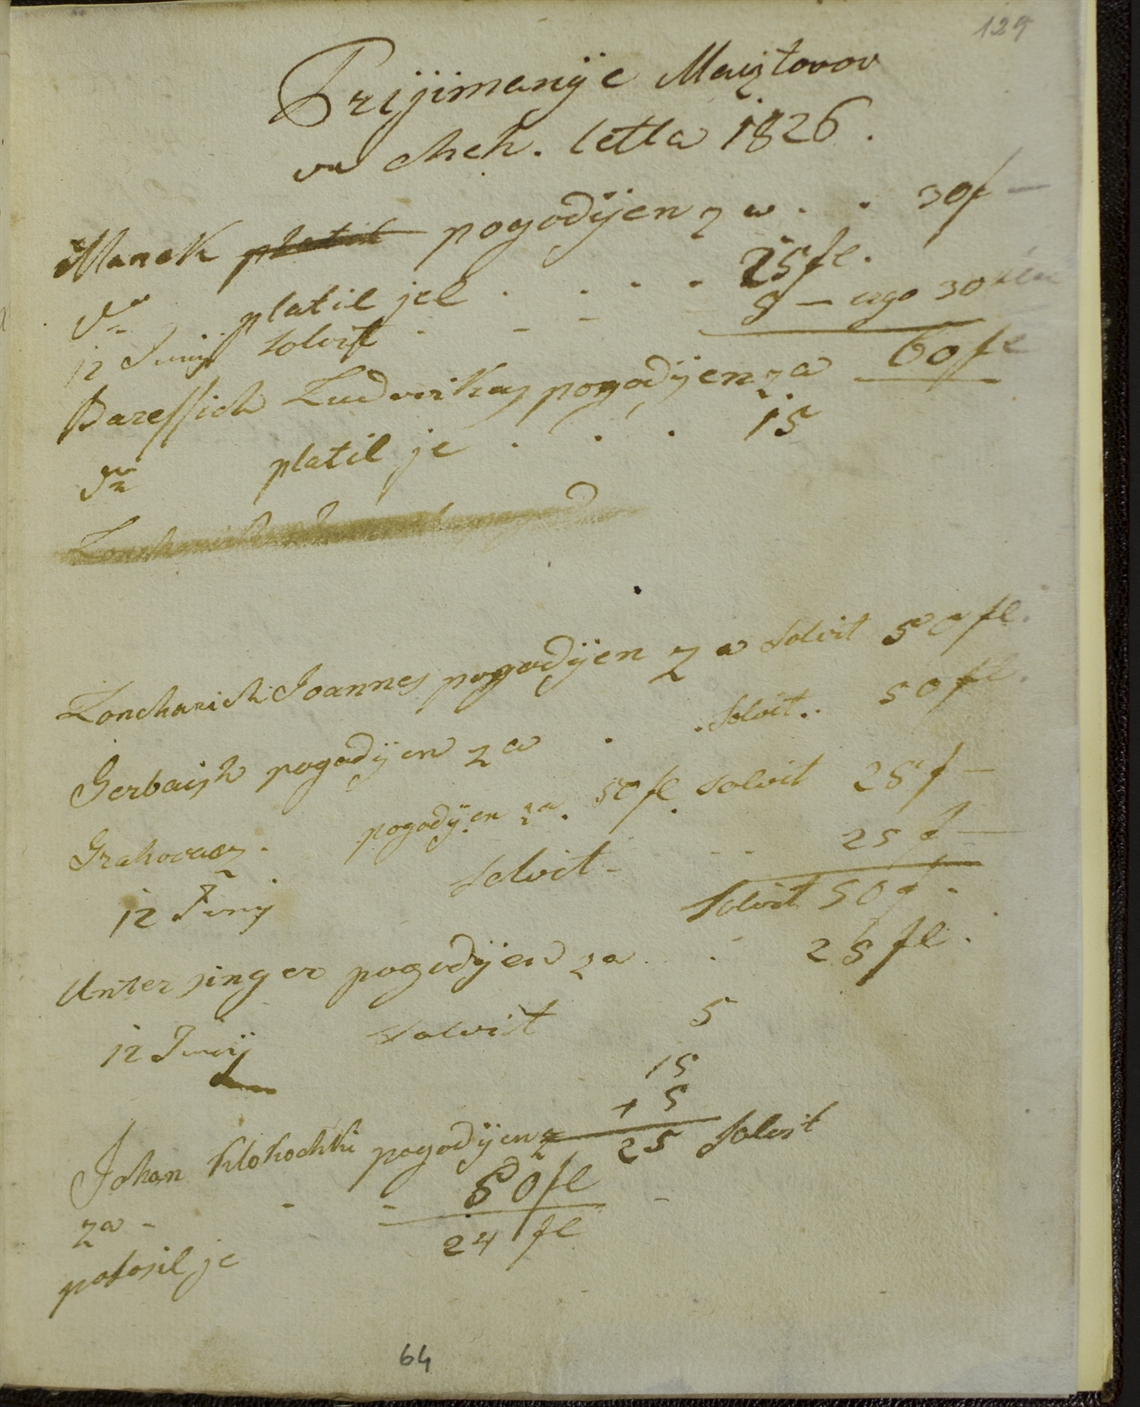 129
Prijimanÿe Mayztorov
vu cheh. letta 1826.
Manek platil pogodÿen za . . 30f —
platil jel . . . . 25fl.
12 Junÿ solvit - - - 5 — ergo 30
Bareſſich Ludvikaz pogodÿen za 60fl
platil je . . . 15
Loncharich Joannes pogodÿen za solvit 50fl.
Gerbaizh pogodÿen za . . solvit . . 50fl.
Grahovacz . pogodÿen za . 50fl. solvit 25f —
12 Junÿ solvit - - - 25f —
solvit 50f .
Untersinger pogodÿen za . . 25fl.
12 Junÿ solvit 5
15
+ 5
25 solvit
Johan Klokochki pogodÿen
za - - - 50fl -
polosil je 24 fl
64